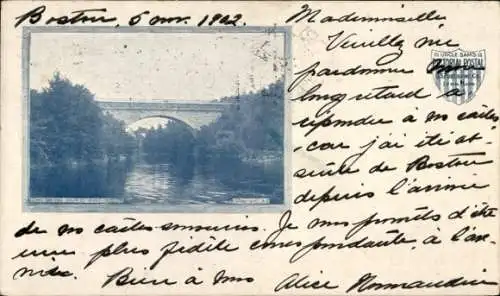 Boston, 5 nov. 1902.
Mademoiselle
Veuillez me
pardonner mon
long retard à
répondre à vos cartes
car j'ai été ab-
sente de Boston
depuis l'arrivée
de vos cartes souvenirs. Je vous promets d'être
une plus fidèle correspondante, à l'ave-
nir. Bien à vous
Alice Normandin
UNCLE SAM'S
POSTAL